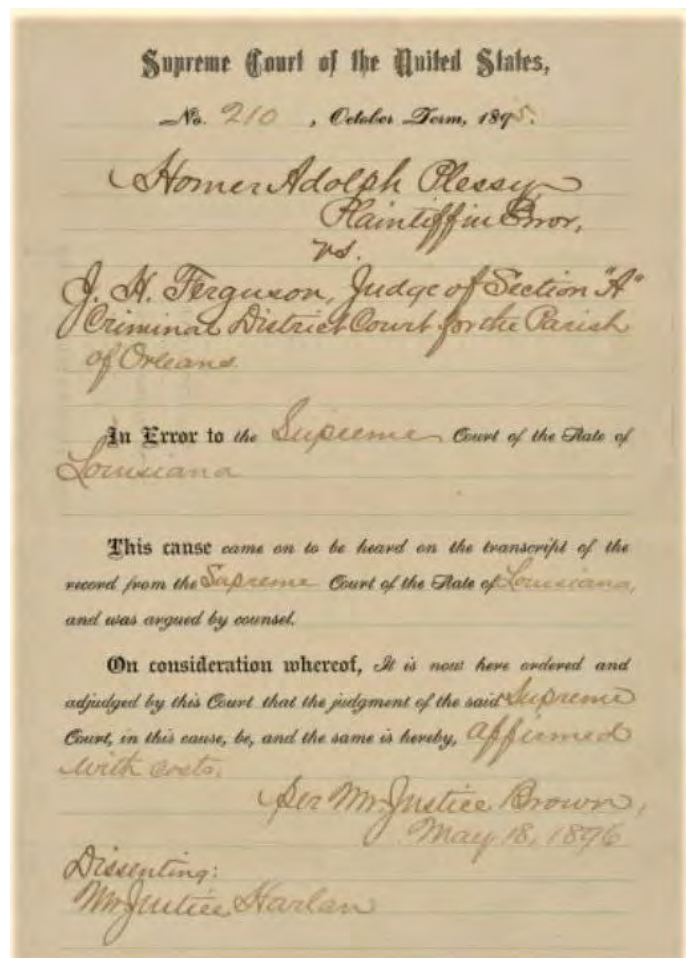 Supreme Court of the United States,
No. 210, October Term, 1895.
Homer Adolph Plessy
Plaintiff in Error,
vs.
J. H. Ferguson, Judge of Section "A"
Criminal District Court for the Parish
of Orleans.
In Error to the Supreme Court of the State of
Louisiana
This cause came on to be heard on the transcript of the
record from the Supreme Court of the State of Louisiana,
and was argued by counsel.
On consideration whereof, It is now here ordered and
adjudged by this Court that the judgment of the said Supreme
Court, in this cause, be, and the same is hereby, affirmed
with costs.
Per Mr. Justice Brown,
May 18, 1896
Dissenting:
Mr. Justice Harlan